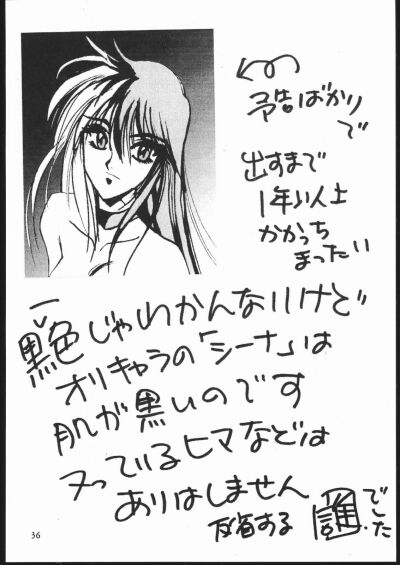 予告ばかり
で
出すまで
1年以上
かかっち
まったい
黒一色じゃわかんないけど
オリキャラの「シーナ」は
肌が黒いのです
ヌっているヒマなどは
ありはしません
反省する でした
36